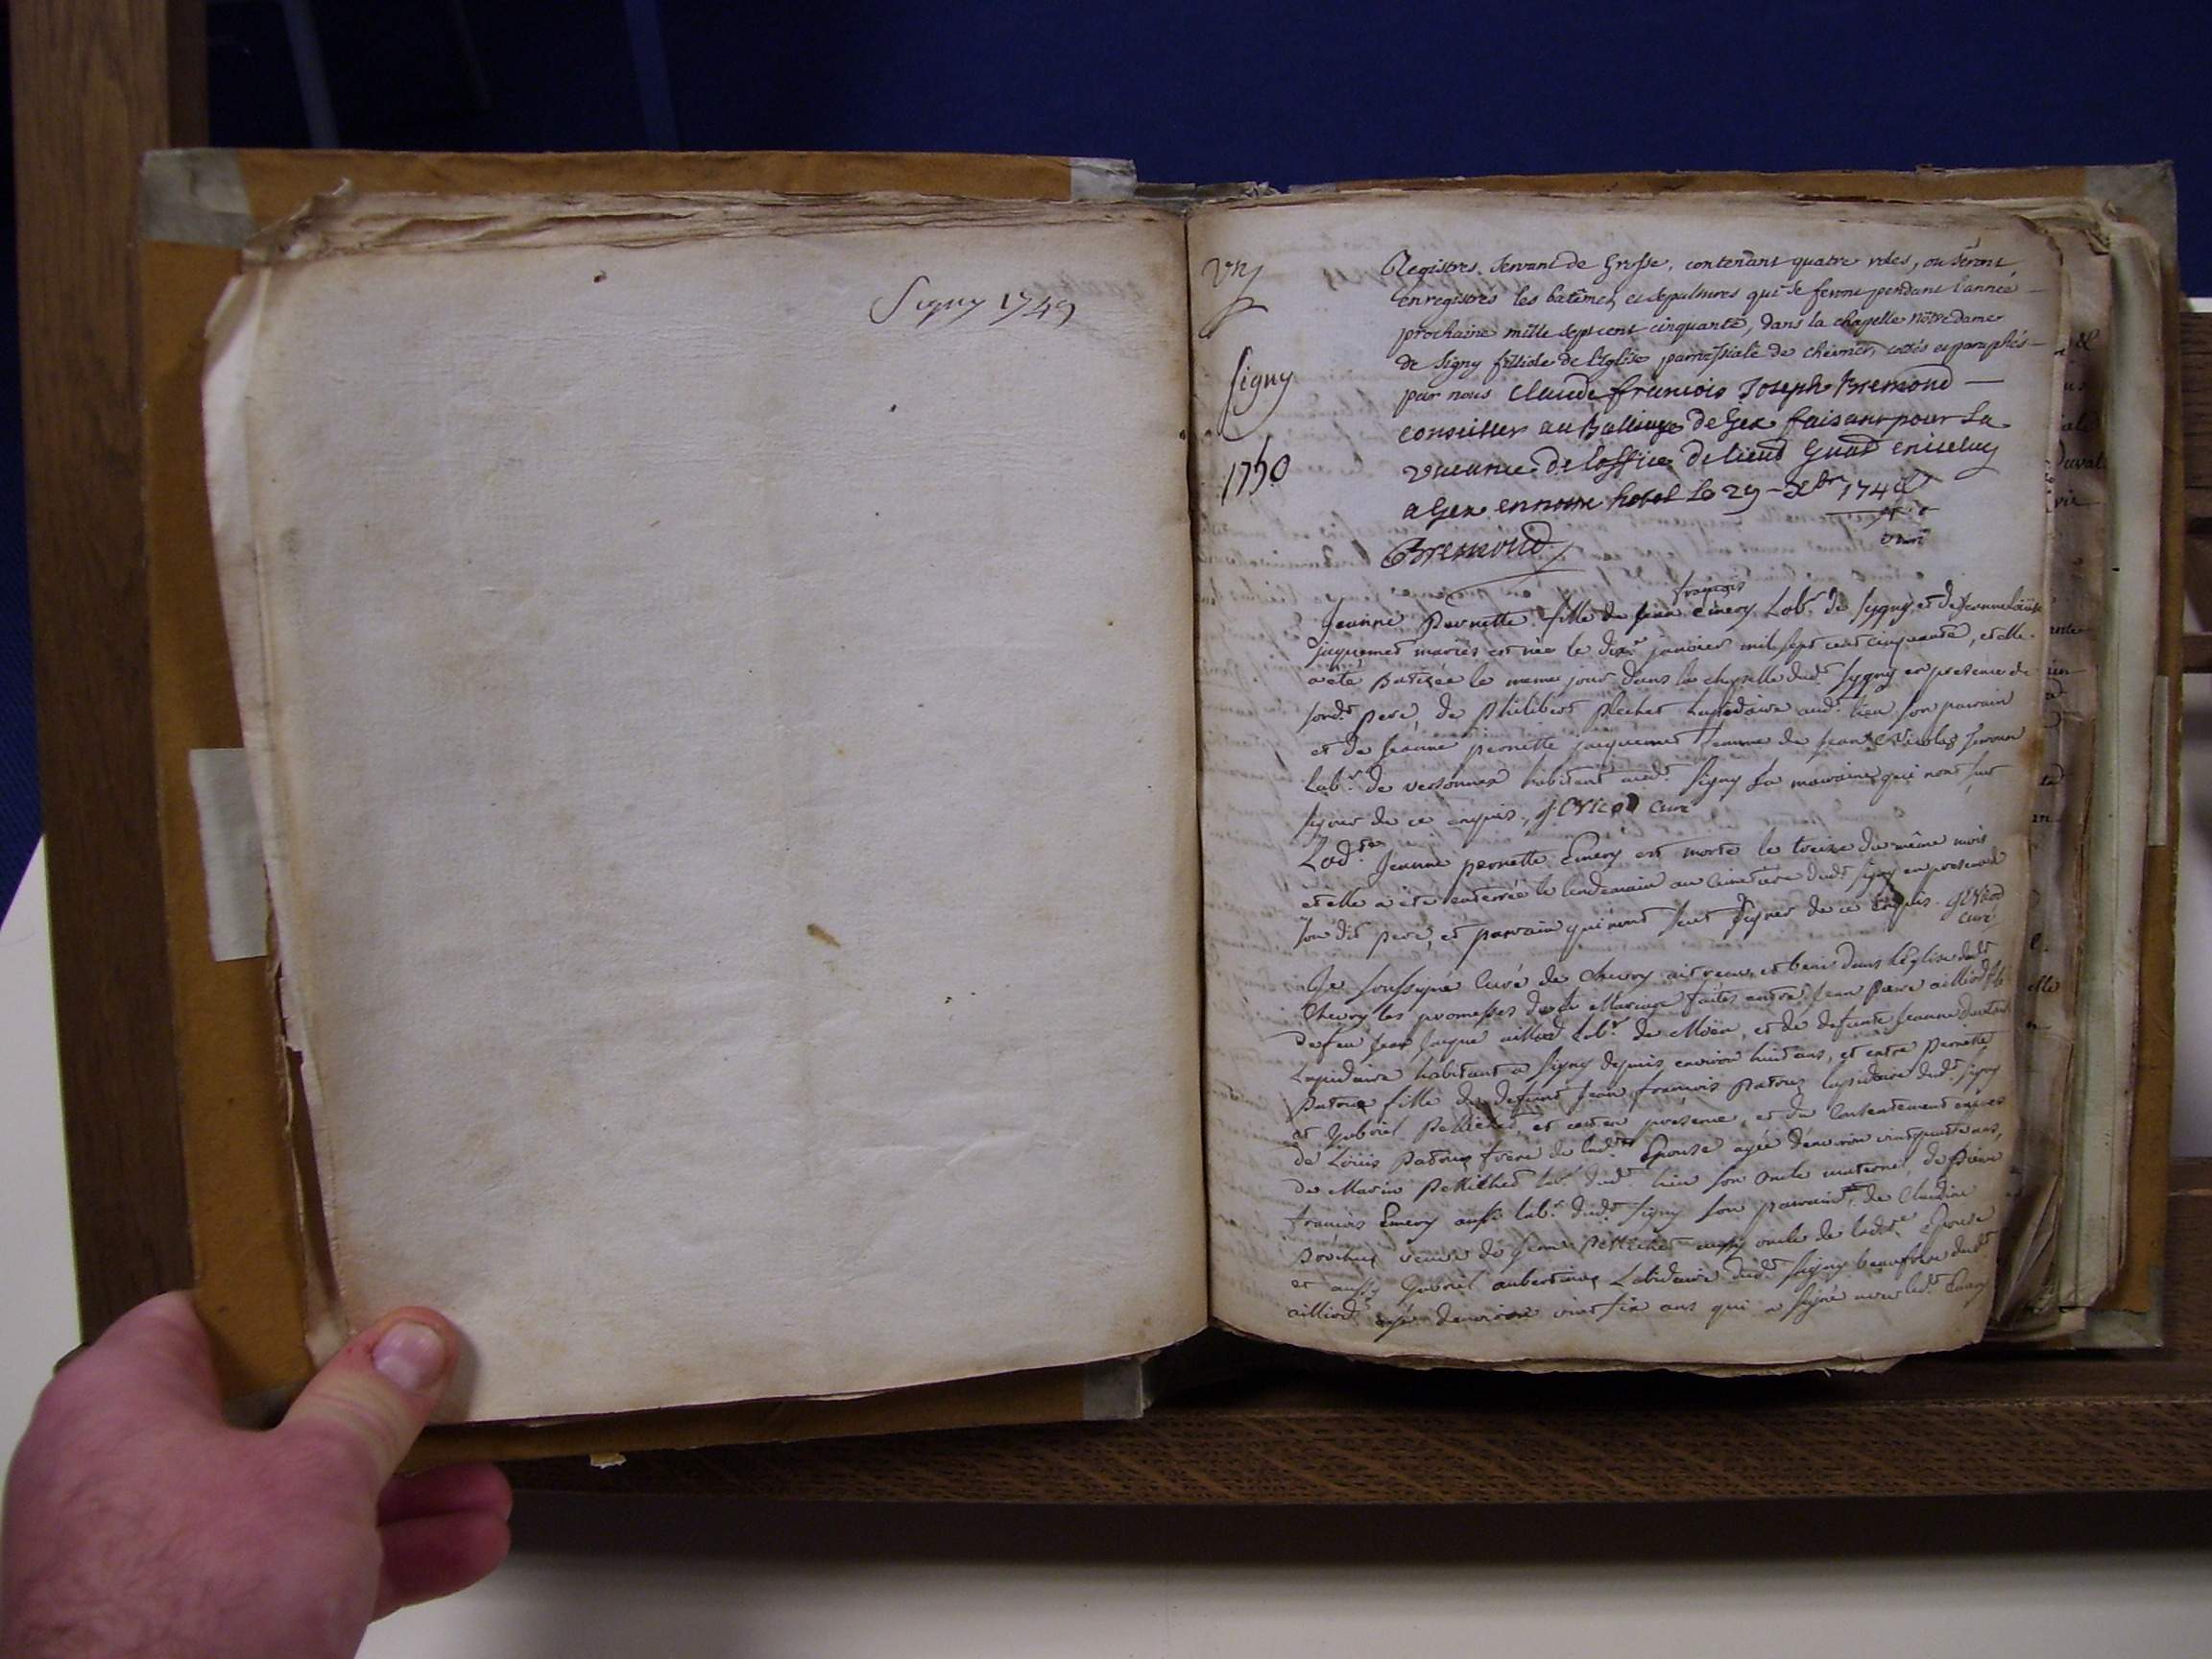 Signy 1749
Vnz
Signy
1750
Registres servant de Grosse, contenant quatre roles, ou seront
enregistrés les batêmes et sepultures qui se feront pendant l'année
prochaine mille sept cent cinquante, dans la chapelle nôtre dame
de Signy filliale de l'Eglise parroissiale de cotés et paraphés
par nous Claude francois Joseph Bremond
conseiller au Balliage de Gex faisant pour la
vacance de loffice de lieut Gnal en iceluy
a Gex en notre hotel le 29 Xbre 174
Bremond
francois
Jeanne Pernette fille de Jean Emery Labr de Sygny, et de Jeanne
jaquemet mariés est née le janvier mil sept cent cinquante, et elle
a eté Batisée le meme jour dans la chapelle dudt Sygny en presence de
sondt Pere, de Philibert Lapidaire audt lieu son parain
et de Jeanne pernette jaquemet femme de Jean Nicolas
Labr de versonnex habitant audt Signy sa maraine qui nont sut
signer de ce enquis, Curé
Ladte Jeanne pernette Emery est morte le treize du même mois
et elle a eté enterrée le lendemain au Cimetiere dudt Signy en presence de
son dit pere, et parain qui n'ont sut signer de ce Enquis.
curé
Je soussigné Curé de Chevry ait reçu et beni dans L'Eglise dudt
Chevry les promesses de Mariage faites entre Jean Pierre ailliod fils
de feu Jean Jaque ailliod Labr de Moën, et de defunte Jeanne
Lapidaire habitant a Signy depuis environ huit ans, et entre Pernette
Patroux fille de defunt Jean francois Patroux lapidaire dudt Signy
et Gabriel Pellichet, et cest en presence, et du Consentement exprès
de Loüis Patroux frere de ladte Epouse agée denviron vintquatre ans,
de Marin Pellichet labr dudt lieu son oncle maternel, de Pierre
francois Emery aussi labr dudt Signy son parain, de Claudine
veuve de Jean Pellichet oncle de ladte Epouse
et aussy Gabriel Labidaire dudt Signy beaufrere dudt
ailliod agé denviron vint six ans qui a signé avec ledt